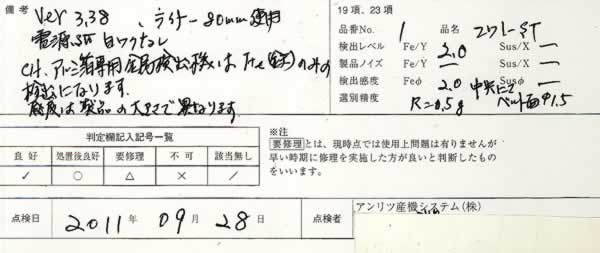 備考 Ver 3.38 、ライナー80mm使用
電源SW
CH. アルミ箔専用金属検出機はFe(鉄)のみの
検出になります.
感度は製品の大きさで異なります.
19 項、23 項
品番No. 1 品名
検出レベル Fe/Y 2.0 Sus/X —
製品ノイズ Fe/Y — Sus/X —
検出感度 Feφ 2.0 Susφ — 中央にて
選別精度 R=0.5g ベルト面φ1.5
判定欄記入記号一覧
良好 処置後良好 要修理 不可 該当無し
✓ ○ △ × /
※注
要修理とは、現時点では使用上問題は有りませんが
早い時期に修理を実施した方が良いと判断したもの
をいいます。
点検日 2011年 09月 28日 点検者 アンリツ産機システム(株)